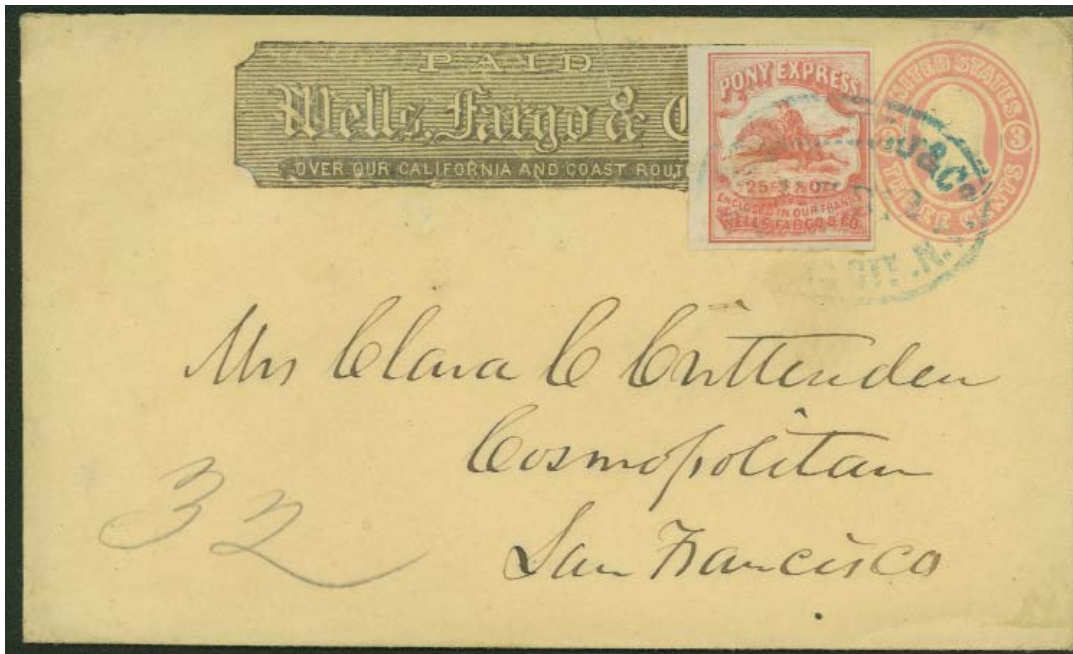 PAID
Wells, Fargo & C
OVER OUR CALIFORNIA AND COAST ROUT
PONY EXPRESS
25
OZ
ENCLOSED IN OUR FRANKS
WELLS, FARGO & CO.
UNITED STATES
3
THREE CENTS
& Co
CITY. N.T.
Mrs Clara C Crittenden
Cosmopolitan
San Francisco
32